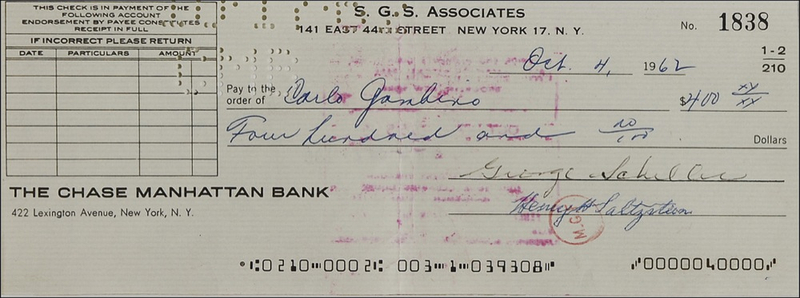 THIS CHECK IS IN PAYMENT OF THE
FOLLOWING ACCOUNT
ENDORSEMENT BY PAYEE CONSTITUTES
RECEIPT IN FULL
IF INCORRECT PLEASE RETURN
DATE PARTICULARS AMOUNT
S. G. S. ASSOCIATES
141 EAST 44TH STREET NEW YORK 17, N. Y.
No. 1838
Oct. 4, 1962
1-2
210
Pay to the
order of Carlo Gambino $400 xx/xx
Four hundred and no/100 Dollars
George Schiller
Henry H Saltzstein
M.G.
THE CHASE MANHATTAN BANK
422 Lexington Avenue, New York, N. Y.
⑆0210⑉0002⑆ 003⑉1⑉039308⑈ ⑈0000040000⑈